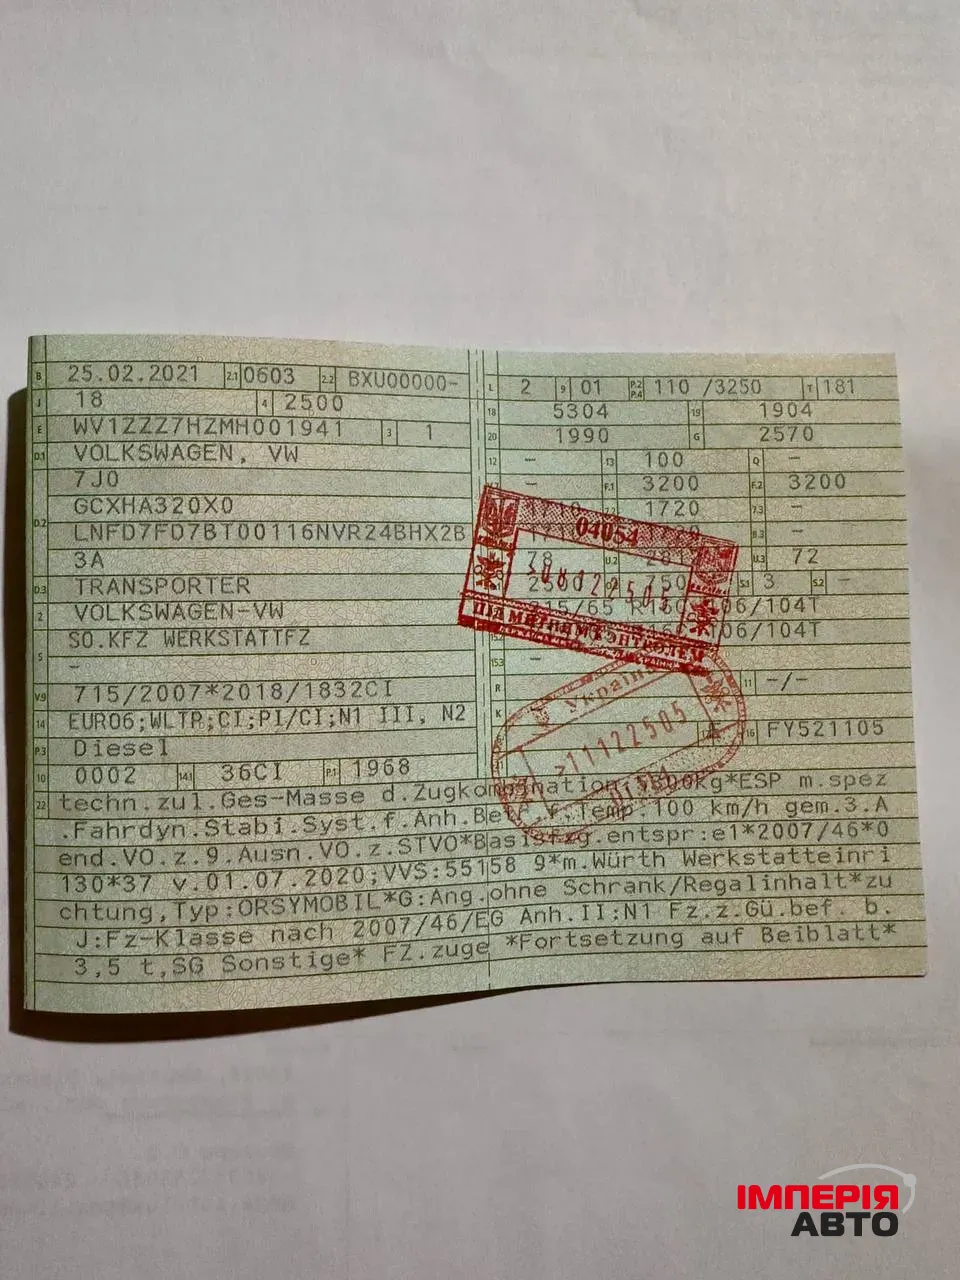 B 25.02.2021 2.1 0603 2.2 BXU00000-
J 18 4 2500
E WV1ZZZ7HZMH001941 3 1
D.1 VOLKSWAGEN, VW
7J0
D.2 GCXHA320X0
LNFD7FD7BT00116NVR24BHX2B
3A
D.3 TRANSPORTER
2 VOLKSWAGEN-VW
5 SO.KFZ WERKSTATTFZ
-
V.9 715/2007*2018/1832CI
14 EURO6;WLTP;CI;PI/CI;N1 III, N2
P.3 Diesel
10 0002 14.1 36CI P.1 1968
L 2 9 01 P.2 P.4 110 /3250 T 181
18 5304 19 1904
20 1990 G 2570
12 - 13 100 Q -
- F.1 3200 F.2 3200
1720 7.3 -
- B.3 -
78 U.2 U.3 72
750 S.1 3 S.2 -
/65 R16C 106/104T
R16C 106/104T
15.3 -
R 11 -/-
K
16 FY521105
04054
ПІД МИТНИМ КОНТРОЛЕМ
Україна
11122505
22 techn.zul.Ges-Masse d.Zugkombination:5300kg*ESP m.spez
.Fahrdyn.Stabi.Syst.f.Anh.Betr.f.Temp.100 km/h gem.3.A
end.VO.z.9.Ausn.VO.z.STVO*Basisfzg.entspr:e1*2007/46*0
130*37 v.01.07.2020;VVS:55158 9*m.Würth Werkstatteinri
chtung,Typ:ORSYMOBIL*G:Ang.ohne Schrank/Regalinhalt*zu
J:Fz-Klasse nach 2007/46/EG Anh.II:N1 Fz.z.Gü.bef. b.
3,5 t,SG Sonstige* FZ.zuge *Fortsetzung auf Beiblatt*
ІМПЕРІЯ
АВТО